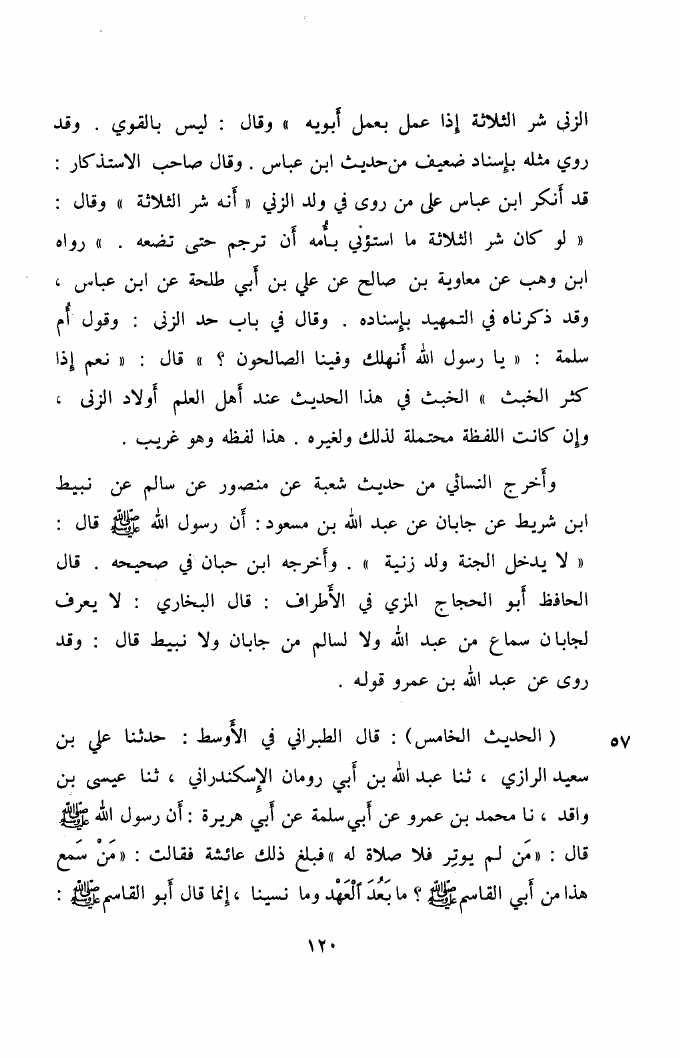 الزنى شر الثلاثة إذا عمل بعمل أبويه » وقال : ليس بالقوي . وقد
روي مثله بإسناد ضعيف من حديث ابن عباس . وقال صاحب الاستذكار :
قد أنكر ابن عباس على من روى في ولد الزني « أنه شر الثلاثة » وقال :
« لو كان شر الثلاثة ما استؤني بأُمه أن ترجم حتى تضعه . » رواه
ابن وهب عن معاوية بن صالح عن علي بن أبي طلحة عن ابن عباس ،
وقد ذكرناه في التمهيد بإسناده . وقال في باب حد الزنى : وقول أُم
سلمة : « يا رسول الله أنهلك وفينا الصالحون ؟ » قال : « نعم إذا
كثر الخبث » الخبث في هذا الحديث عند أهل العلم أولاد الزنى ،
وإن كانت اللفظة محتملة لذلك ولغيره . هذا لفظه وهو غريب .
وأخرج النسائي من حديث شعبة عن منصور عن سالم عن نبيط
ابن شريط عن جابان عن عبد الله بن مسعود : أن رسول الله ﷺ قال :
« لا يدخل الجنة ولد زنية » . وأخرجه ابن حبان في صحيحه . قال
الحافظ أبو الحجاج المزي في الأطراف : قال البخاري : لا يعرف
لجابان سماع من عبد الله ولا لسالم من جابان ولا نبيط قال : وقد
روى عن عبد الله بن عمرو قوله .
٥٧ ( الحديث الخامس ) : قال الطبراني في الأوسط : حدثنا علي بن
سعيد الرازي ، ثنا عبد الله بن أبي رومان الإسكندراني ، ثنا عيسى بن
واقد ، نا محمد بن عمرو عن أبي سلمة عن أبي هريرة : أن رسول الله ﷺ
قال : «مَن لم يوتِر فلا صلاة له » فبلغ ذلك عائشة فقالت : «مَنْ سَمع
هذا من أبي القاسم ﷺ ؟ ما بَعُدَ ٱلْعَهْد وما نسينا ، إنما قال أبو القاسم ﷺ :
١٢٠